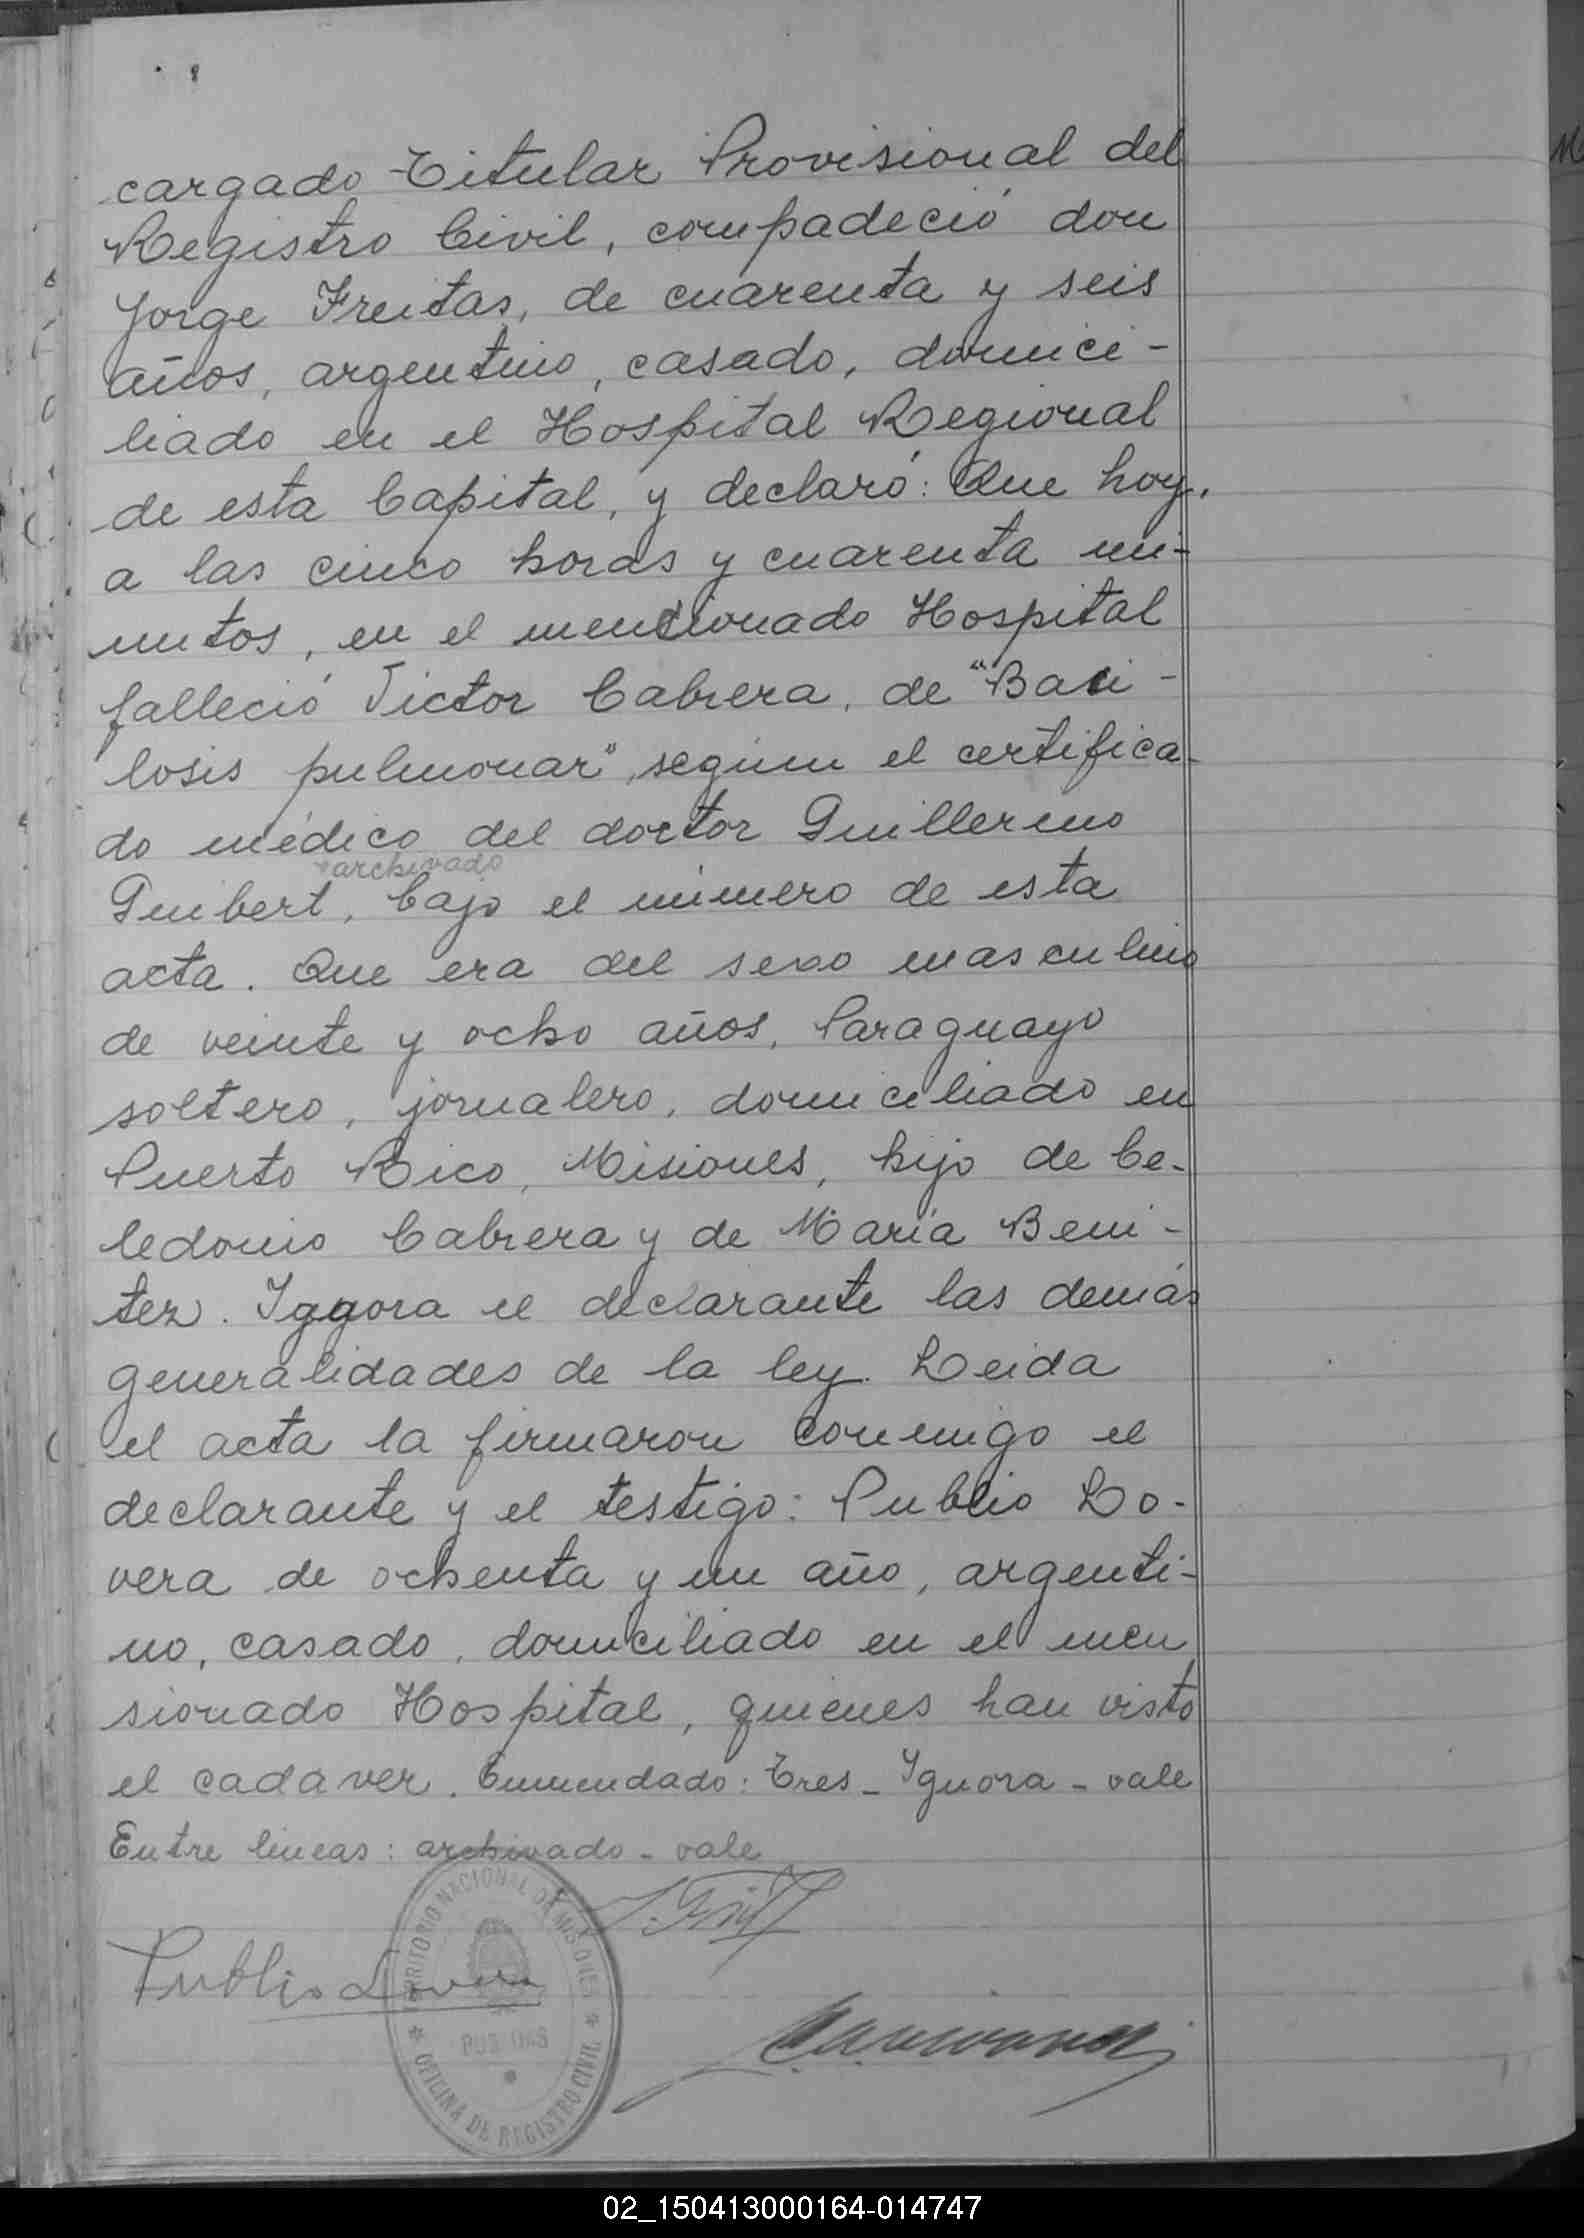 cargado Titular Provisional del
Registro Civil, compadeció don
Jorge Freitas, de cuarenta y seis
años, argentino, casado, domici-
liado en el Hospital Regional
de esta Capital, y declaró: Que hoy,
a las cinco horas y cuarenta mi-
nutos, en el mencionado Hospital
falleció Victor Cabrera, de "Baci-
losis pulmonar", segun el certifica-
do médico del doctor Guillermo
archivado
Guibert, bajo el número de esta
acta. Que era del sexo masculino
de veinte y ocho años, Paraguayo
soltero, jornalero, domiciliado en
Puerto Rico, Misiones, hijo de Ce-
ledonio Cabrera y de María Beni-
tez. Iggora el declarante las demás
generalidades de la ley. Leida
el acta la firmaron conmigo el
declarante y el testigo: Publio Lo-
vera de ochenta y un año, argenti-
no, casado, domiciliado en el men
sionado Hospital, quienes han visto
el cadaver. Enmendado: Tres - Ignora - vale
Entre lineas: archivado - vale
J. Freitas
Publio Lovera
TERRITORIO NACIONAL DE MISIONES
POSADAS
OFICINA DE REGISTRO CIVIL
02_150413000164-014747